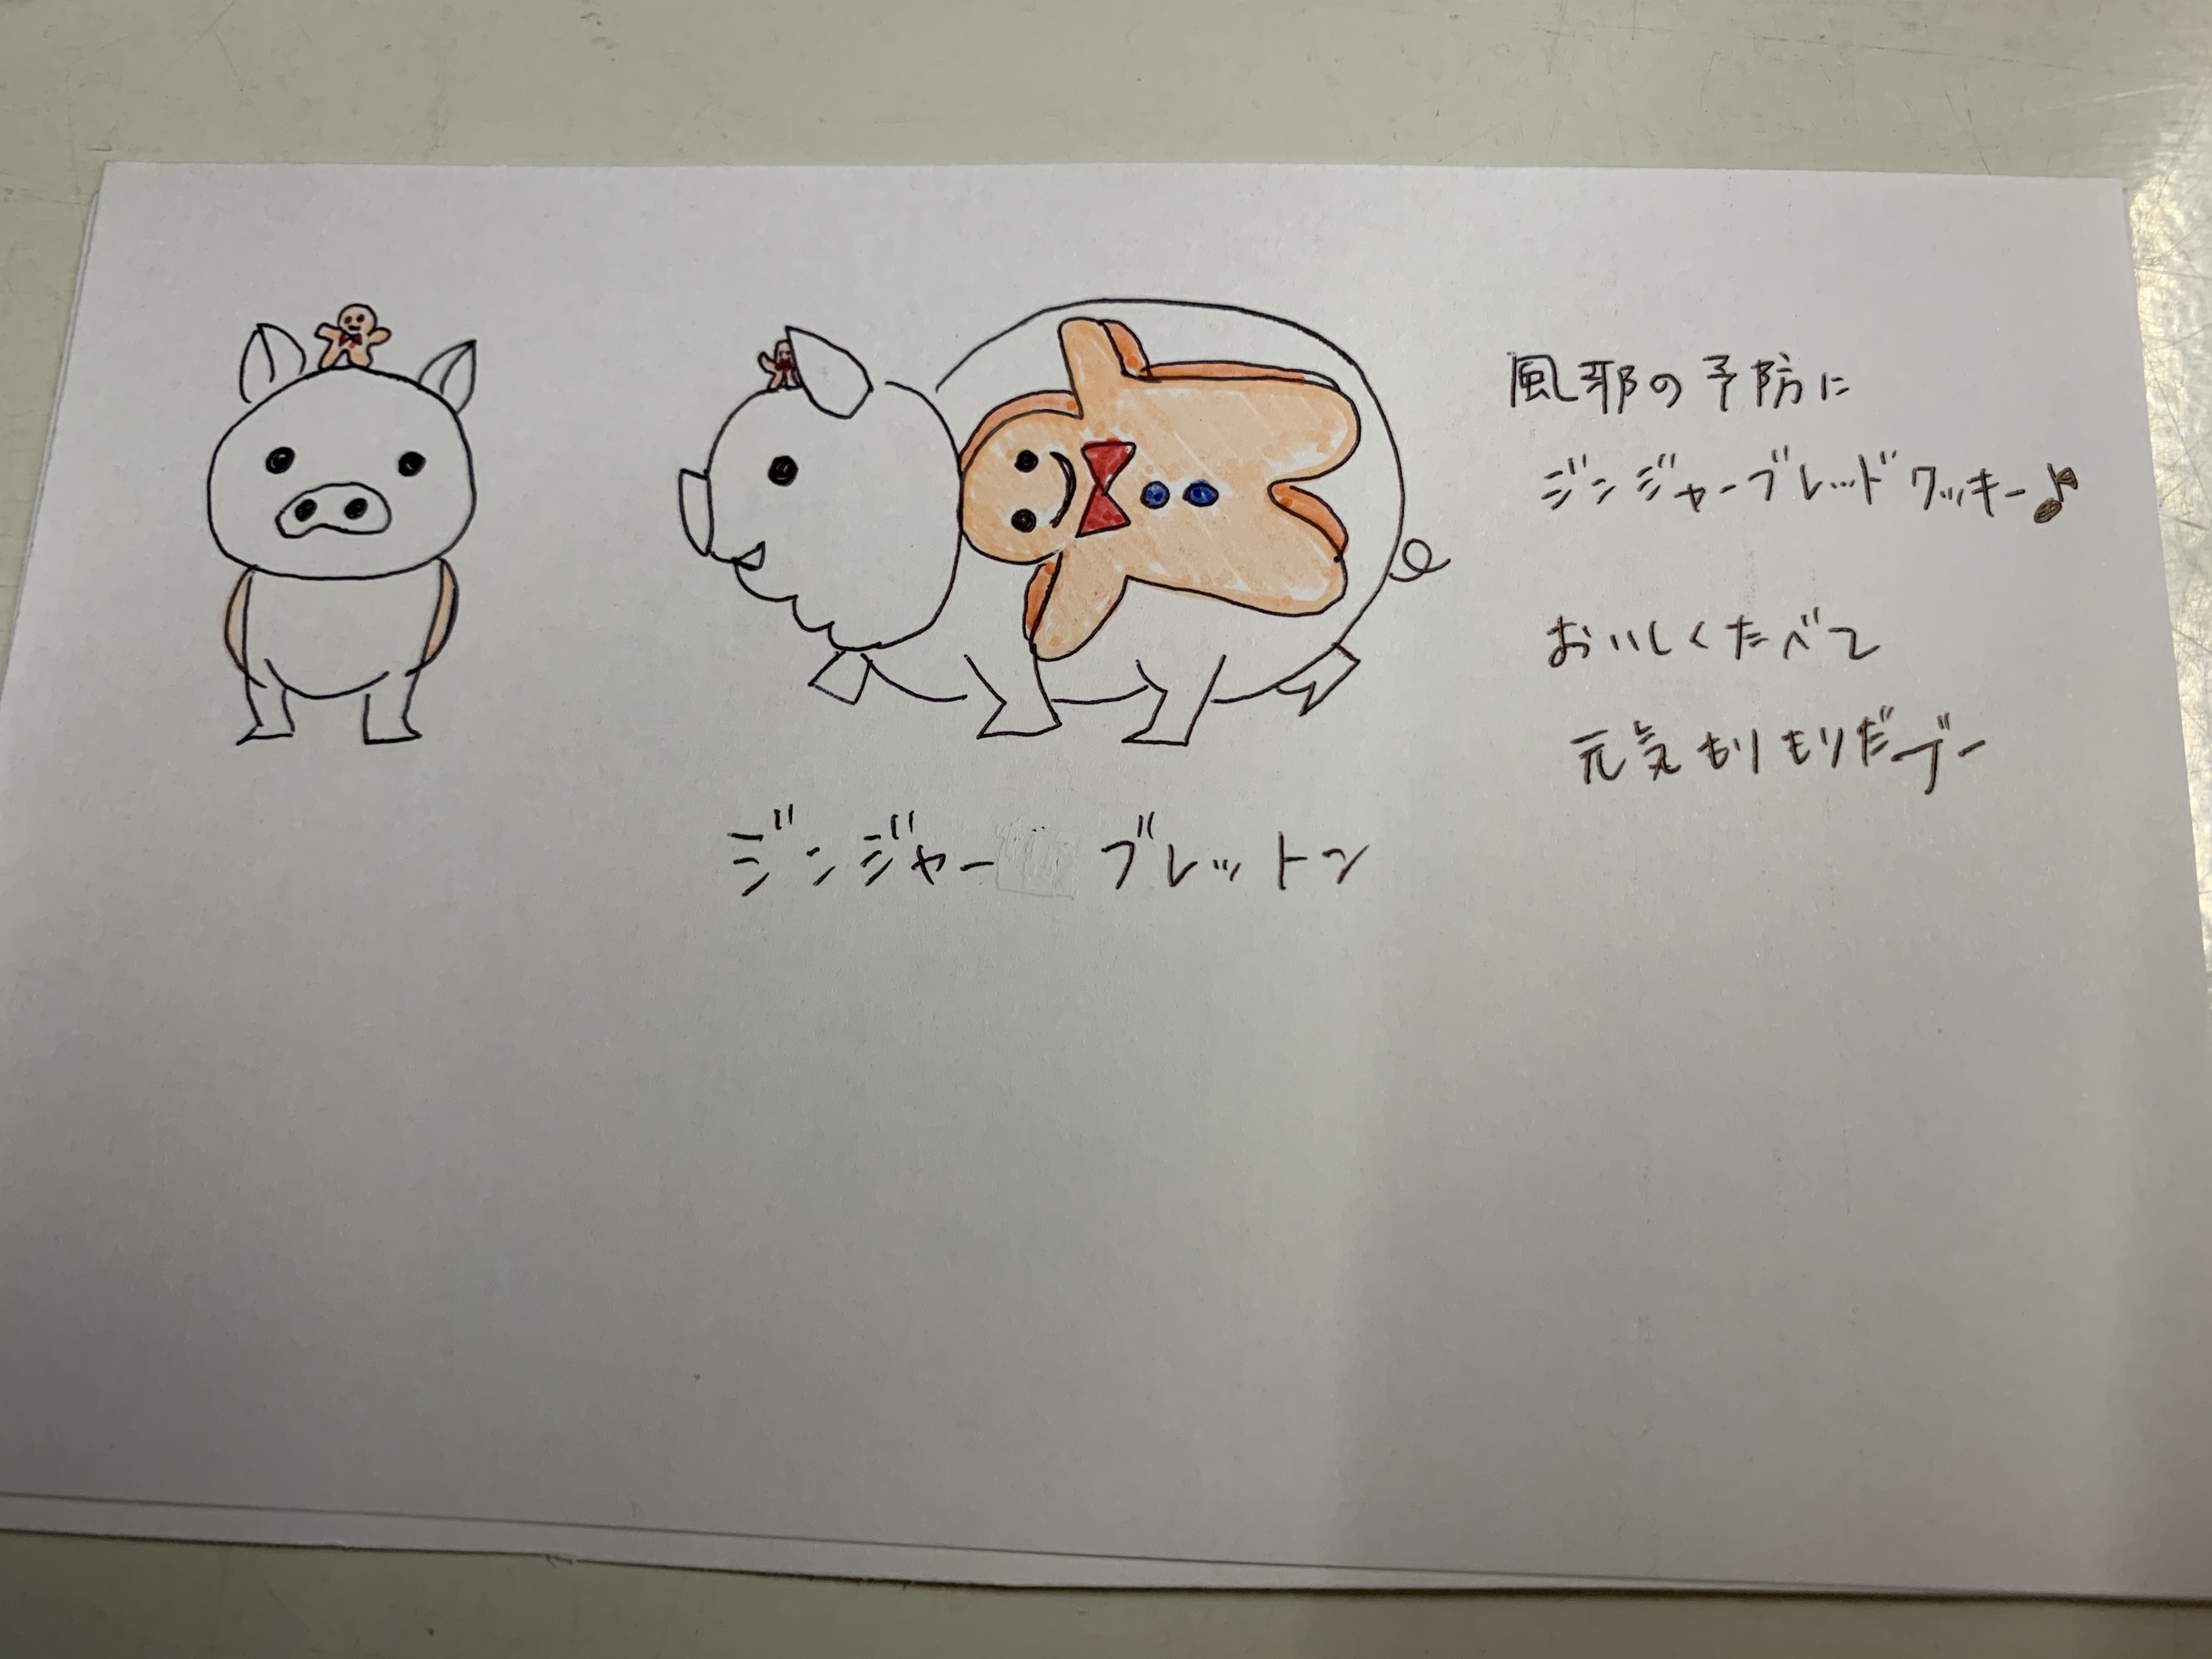 風邪の予防に
ジンジャーブレッドクッキー♪
おいしくたべて
元気もりもりだブー
ジンジャー ブレットン